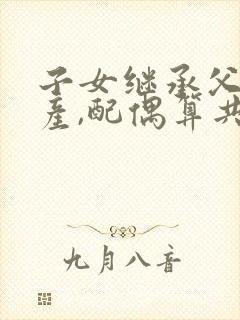 子女继承父
产,配偶算共
九月八音